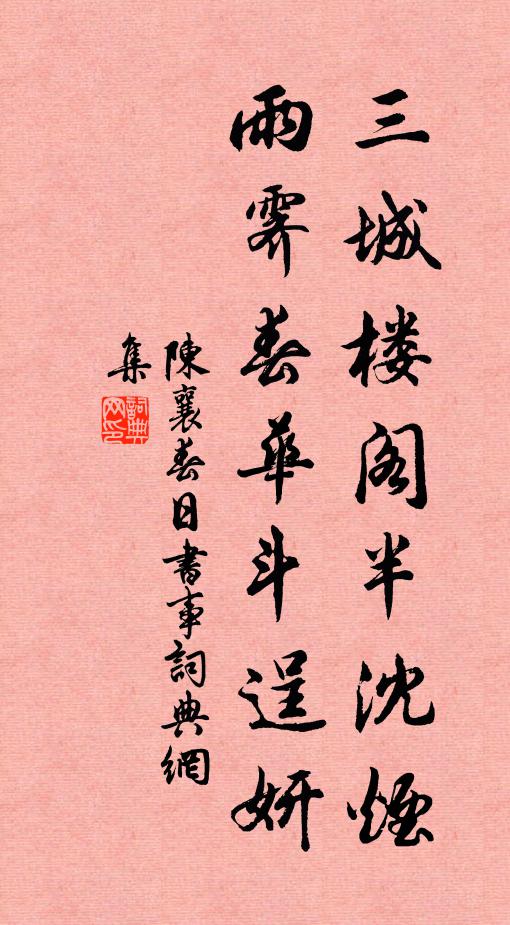 三城楼阁半沈煙
雨霽春華斗逞妍
陳襄春日書事詞典網
集
詞典網印